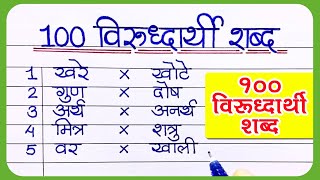 100 विरुध्दार्थी शब्द
1 खरे × खोटे
2 गुण × दोष
3 अर्थ × अनर्थ
4 मित्र × शत्रु
5 वर × खाली
१००
विरुध्दार्थी
शब्द